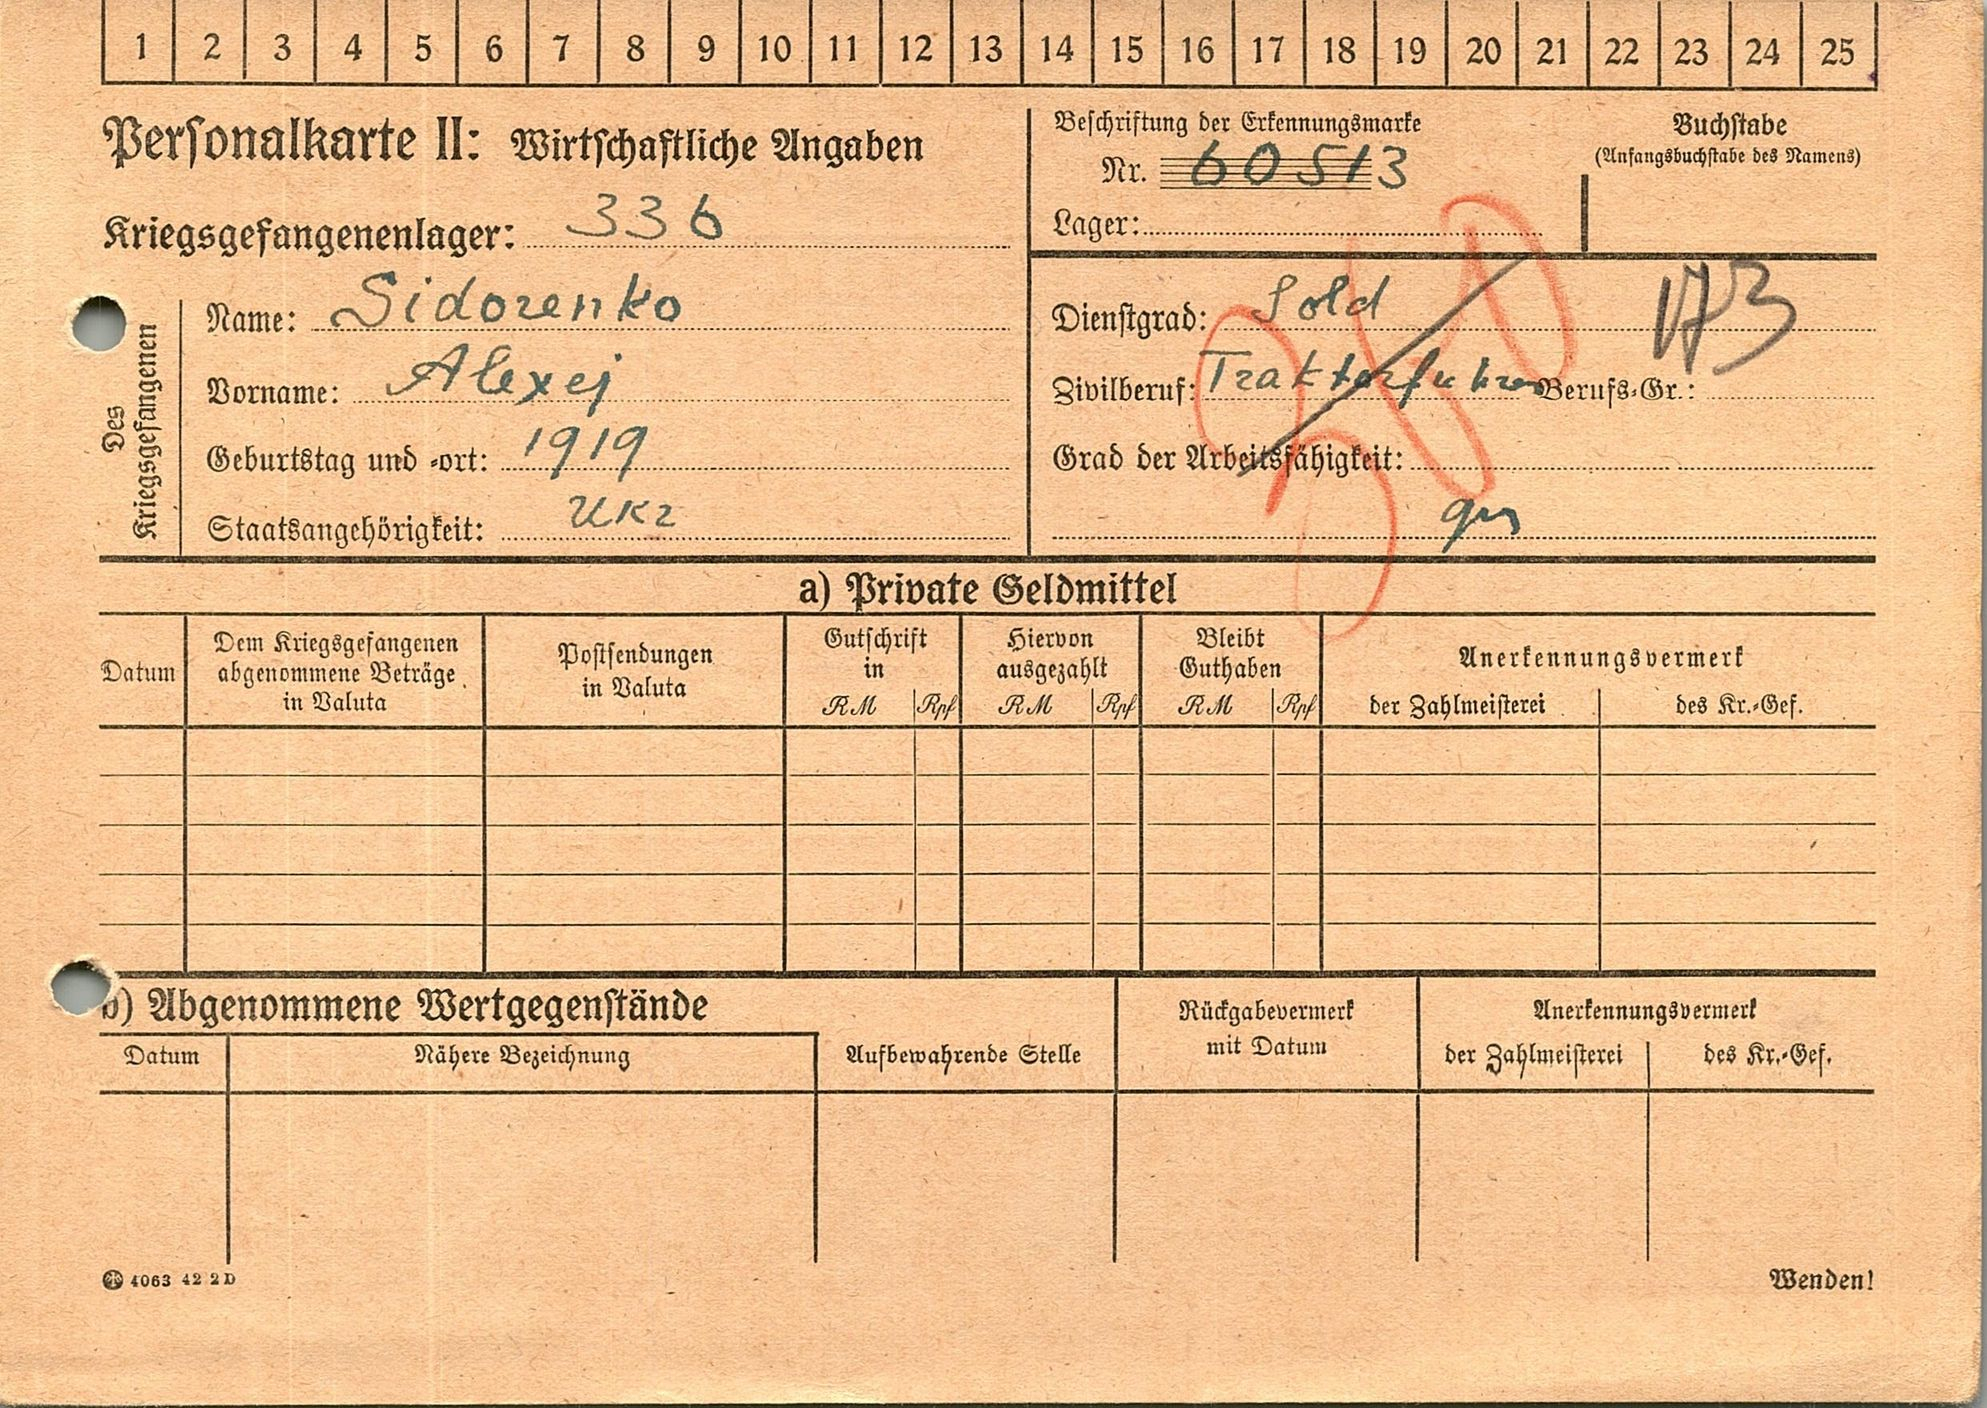 1 2 3 4 5 6 7 8 9 10 11 12 13 14 15 16 17 18 19 20 21 22 23 24 25
Personalkarte II: Wirtschaftliche Angaben
Kriegsgefangenenlager: 336
Des Kriegsgefangenen
Name: Sidorenko
Vorname: Alexej
Geburtstag und -ort: 1919
Staatsangehörigkeit: Ukr
Beschriftung der Erkennungsmarke
Nr. 60513
Lager:
Buchstabe
(Anfangsbuchstabe des Namens)
Dienstgrad: Sold
173
Zivilberuf: Trakterfuhrer Berufs-Gr.:
Grad der Arbeitsfähigkeit:
a) Private Geldmittel
Datum
Dem Kriegsgefangenen
abgenommene Beträge
in Valuta
Postsendungen
in Valuta
Gutschrift
in
RM Rpf
Hiervon
ausgezahlt
RM Rpf
Bleibt
Guthaben
RM Rpf
Anerkennungsvermerk
der Zahlmeisterei des Kr.-Gef.
b) Abgenommene Wertgegenstände
Datum Nähere Bezeichnung Aufbewahrende Stelle
Rückgabevermerk
mit Datum
Anerkennungsvermerk
der Zahlmeisterei des Kr.-Gef.
4063 42 2 D
Wenden!